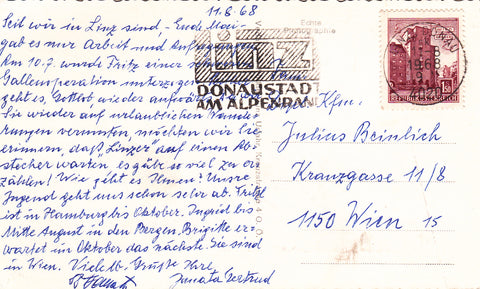 11.8.68
Seit wir in Linz sind, Ende Mai,
gab es nur Arbeit und Aufregungen
Am 10.7. wurde Fritz einer schweren
Gallenoperation unterzogen
geht es, Gottlob, wieder aufwärts
Sie wieder auf urlaublichen Wande-
rungen vermuten, möchten wir Sie
erinnern, daß "Linzer" auf einen Ab-
stecher warten, es gäbe so viel zu er-
zählen! Wie geht es Ihnen? Unsre
Jugend geht uns schon sehr ab. Fritzl
ist in Hamburg bis Oktober. Ingrid bis
Mitte August in den Bergen. Brigitte er-
wartet im Oktober das nächste. Sie sind
in Wien. Vielleb. Grüße Ihre
Gertrud
Echte
Photographie
LINZ
DONAUSTADT
AM ALPENRAND
1968
4020
REPUBLIK ÖSTERREICH
Kfm.
Julius Beinlich
Kranzgasse 11/8
1150 Wien 15